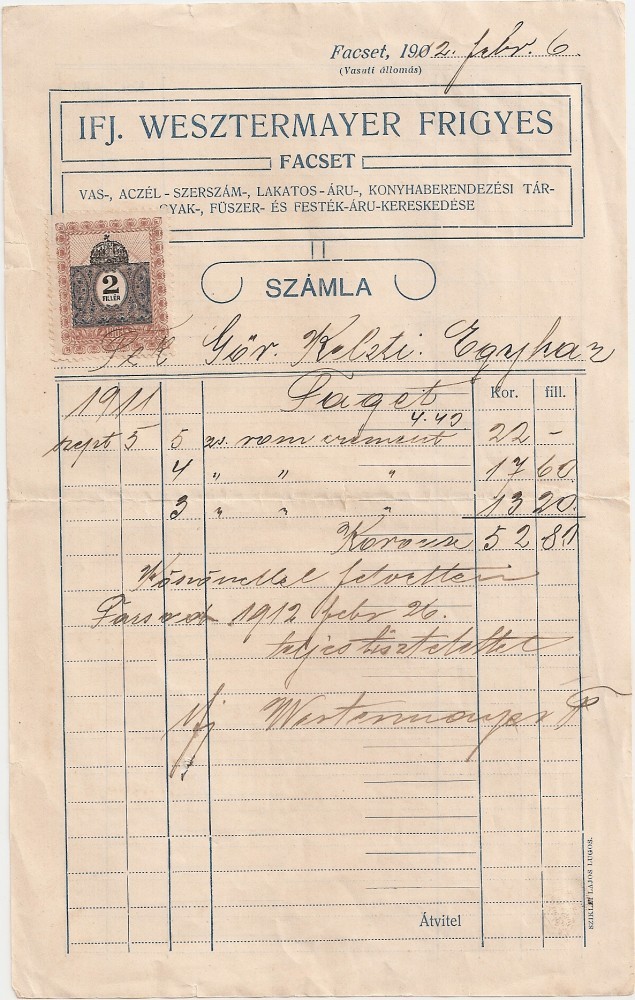 Facset, 1902. febr. 6
(Vasuti állomás)
IFJ. WESZTERMAYER FRIGYES
FACSET
VAS-, ACZÉL-SZERSZÁM-, LAKATOS-ÁRU-, KONYHABERENDEZÉSI TÁR-
GYAK-, FÜSZER- ÉS FESTÉK-ÁRU-KERESKEDÉSE
2
FILLÉR
SZÁMLA
Gör. Kelzti. Egyhaz
Faget
Kor. fill.
1911
4.40
szept 5 5 rom cement 22 -
4 " " " 17 60
3 " " " 13 20
Korona 52 80
Köszönettel felvettem
1912 febr 26.
teljes tisztelettel
Ifj Westermayer F
Átvitel
SZIKLAI LAJOS LUGOS.